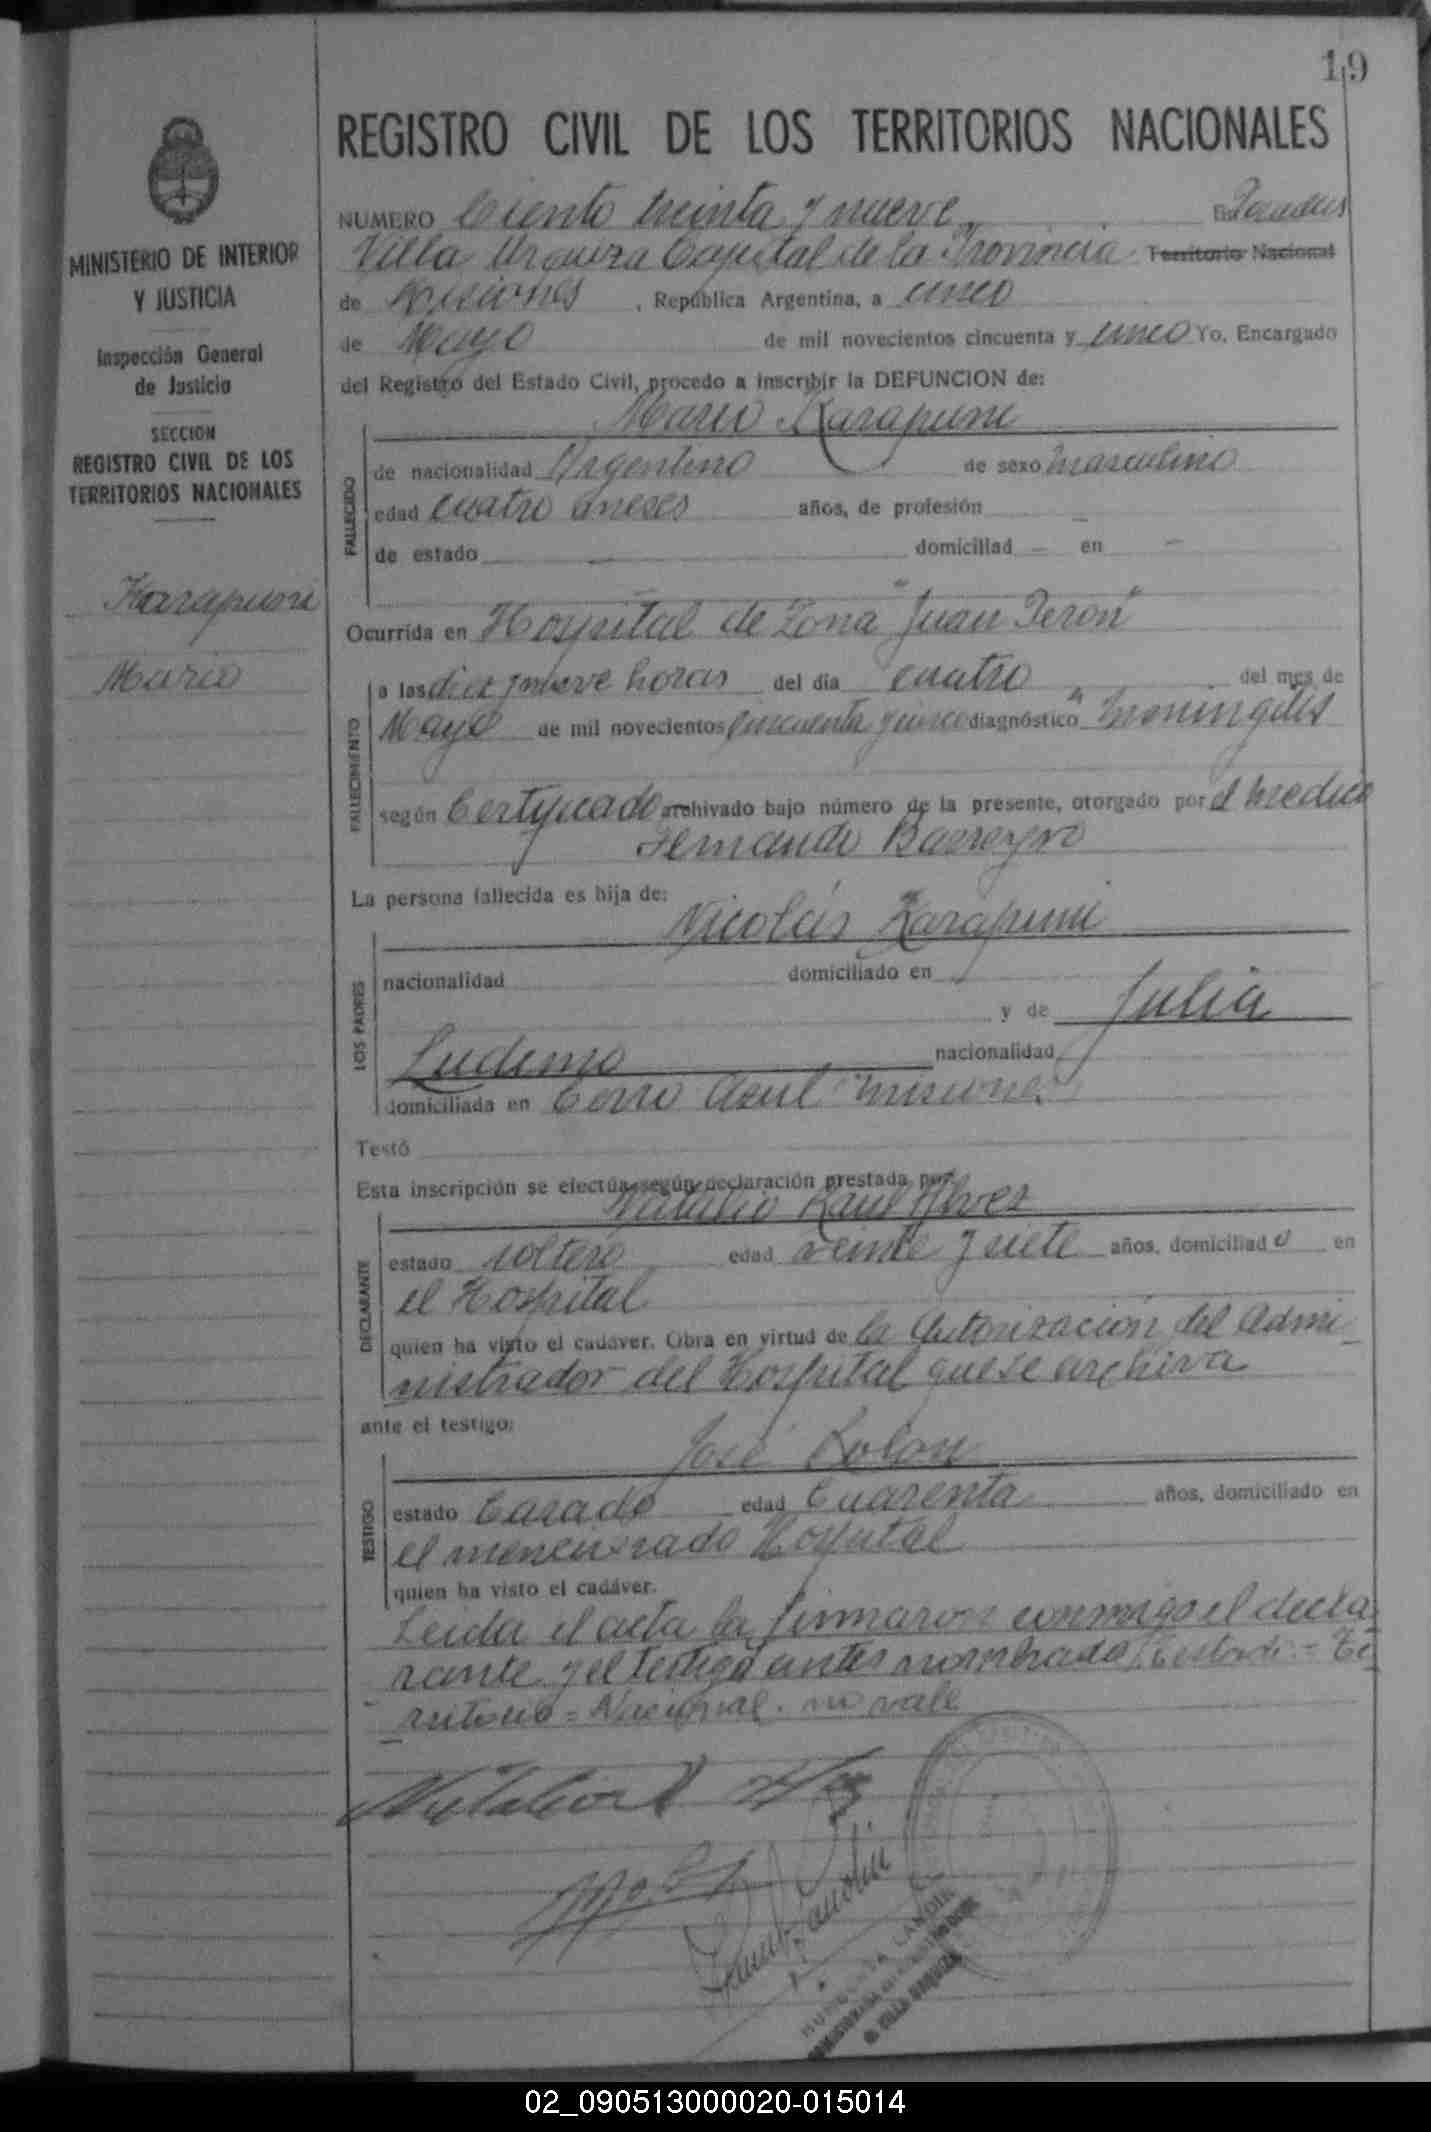 19
REGISTRO CIVIL DE LOS TERRITORIOS NACIONALES
MINISTERIO DE INTERIOR
Y JUSTICIA
Inspección General
de Justicia
SECCION
REGISTRO CIVIL DE LOS
TERRITORIOS NACIONALES
Karapuni
Mario
NUMERO Ciento treinta y nueve En Posadas
Villa Urquiza Capital de la Provincia Territorio Nacional
de Misiones, República Argentina, a cinco
de Mayo de mil novecientos cincuenta y cinco Yo, Encargado
del Registro del Estado Civil, procedo a inscribir la DEFUNCION de:
Mario Karapuni
FALLECIDO
de nacionalidad Argentino de sexo masculino
edad cuatro meses años, de profesión -
de estado - domiciliad - en -
Ocurrida en Hospital de Zona "Juan Perón"
FALLECIMIENTO
a las diez y nueve horas del día cuatro del mes de
Mayo de mil novecientos cincuenta y cinco diagnóstico "meningitis
según Certificado archivado bajo número de la presente, otorgado por el medico
Fernando Barreyro
La persona fallecida es hija de:
LOS PADRES
Nicolás Karapuni
nacionalidad domiciliado en
y de Julia
Ludemo nacionalidad
domiciliada en Cerro Azul Misiones
Testó
Esta inscripción se efectúa según declaración prestada por
DECLARANTE
Natalio Raul Alvez
estado soltero edad veinte y siete años, domiciliado en
el Hospital
quien ha visto el cadáver. Obra en virtud de la Autorización del Admi
nistrador del Hospital que se archiva
ante el testigo:
TESTIGO
José Lolon
estado Casado edad Cuarenta años, domiciliado en
el mencionado Hospital
quien ha visto el cadáver.
Leida el acta la firmaron conmigo el decla
rante y el testigo antes nombrado Testado = Te
rritorio = Nacional. no vale
HUMBERTO LANDI
VILLA URQUIZA
02_090513000020-015014